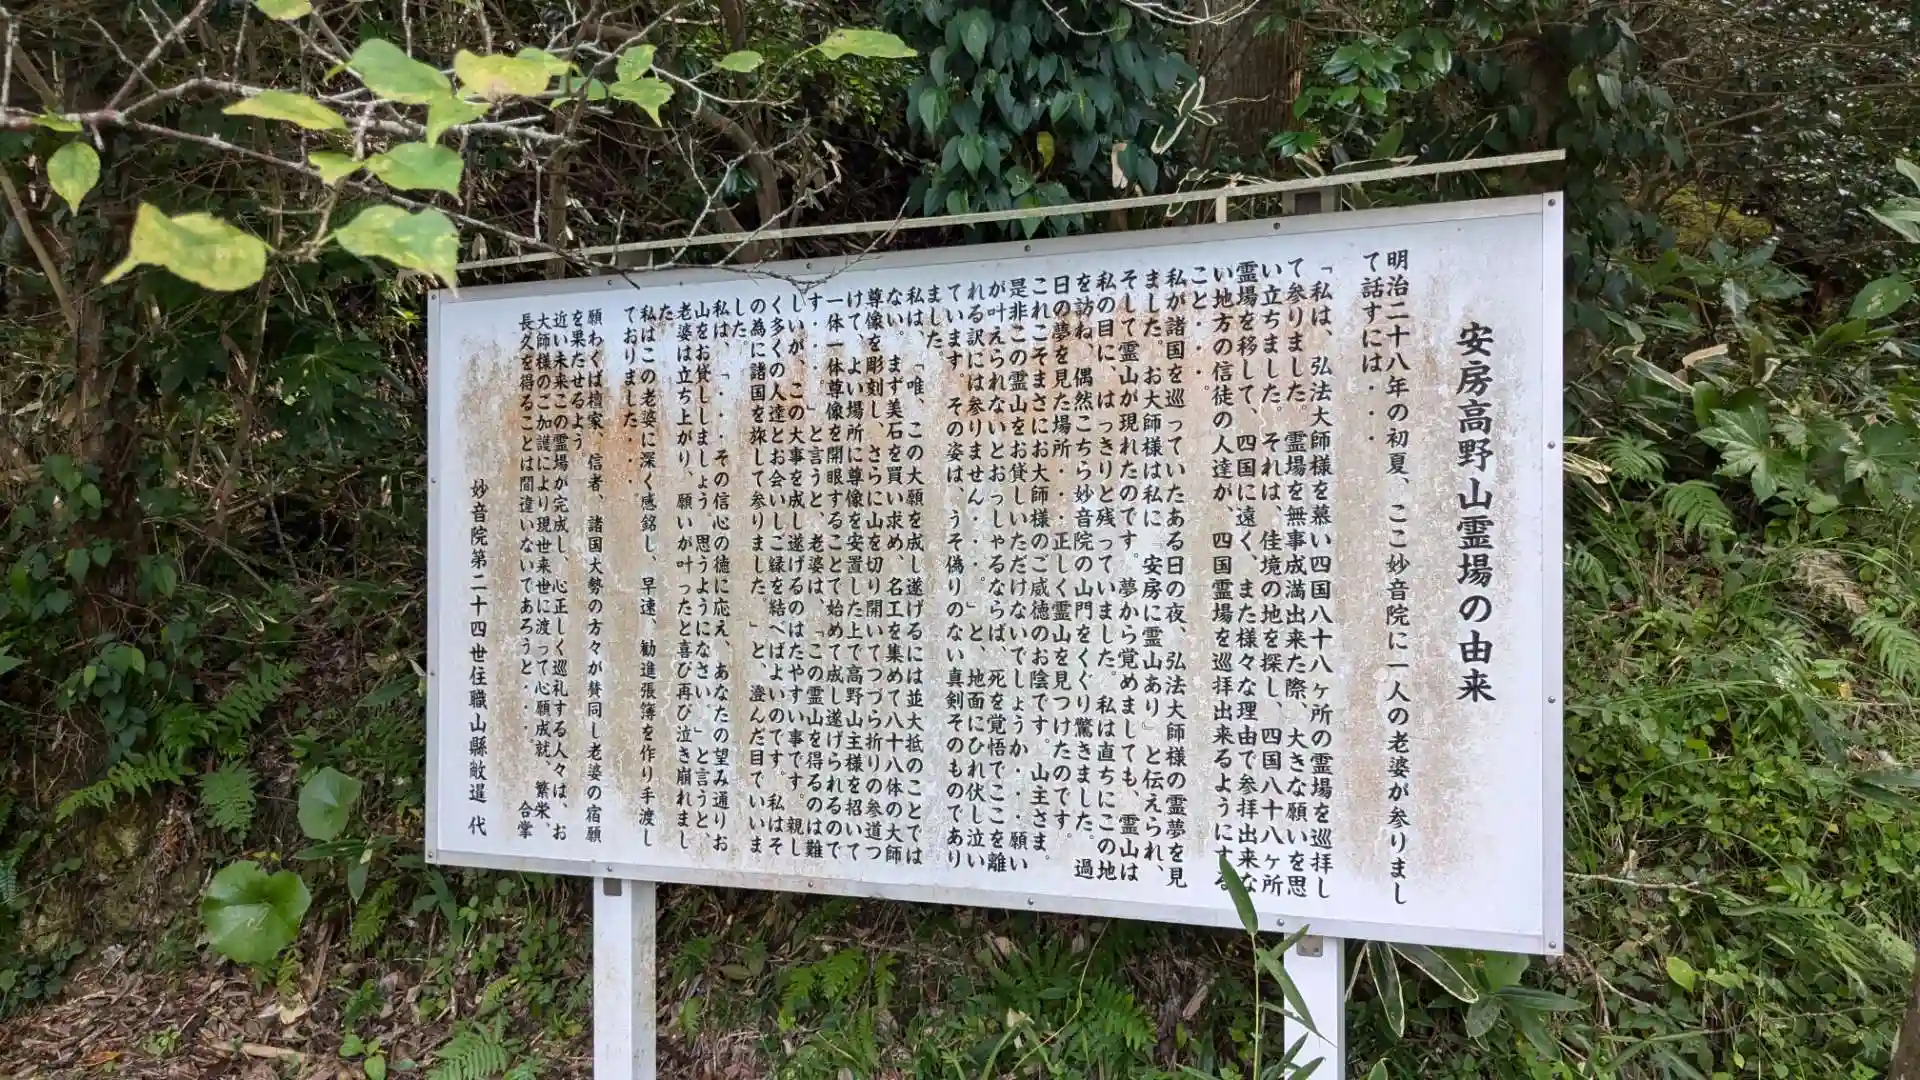 安房高野山霊場の由来
明治二十八年の初夏、ここ妙音院に一人の老婆が参りまし
て話すには・・・
「私は、弘法大師様を慕い四国八十八ヶ所の霊場を巡拝し
て参りました。霊場を無事成満出来た際、大きな願いを思
い立ちました。それは、佳境の地を探し、四国八十八ヶ所
霊場を移して、四国に遠く、また様々な理由で参拝出来な
い地方の信徒の人達が、四国霊場を巡拝出来るようにする
こと・・・
私が諸国を巡っていたある日の夜、弘法大師様の霊夢を見
ました。お大師様は私に『安房に霊山あり』と伝えられ、
そして霊山が現れたのです。夢から覚めましても、霊山は
私の目に、はっきりと残っていました。私は直ちにこの地
を訪ね、偶然こちら妙音院の山門をくぐり驚きました。過
日の夢を見た場所・・正しく霊山を見つけたのです。
これこそまさにお大師様のご威徳のお陰です。山主さま。
是非この霊山をお貸しいただけないでしょうか・・・願い
が叶えられないとおっしゃるならば、死を覚悟でここを離
れる訳には参りません・・・。」と、地面にひれ伏し泣い
ています。その姿は、うそ偽りのない真剣そのものであり
ました。
私は、「唯、この大願を成し遂げるには並大抵のことでは
ない。まず美石を買い求め、名工を集めて八十八体の大師
尊像を彫刻し、さらに山を切り開いてつづら折りの参道つ
けて、よい場所に尊像を安置した上で高野山主様を招いて
一体一体尊像を開眼することで始めて成し遂げられるので
す・・・。」と言うと、老婆は、「この霊山を得るのは難
しいが、この大事を成し遂げるのはたやすい事です。親し
く多くの人達とお会いしご縁を結べばよいのです。私はそ
の為に諸国を旅して参りました。」と、澄んだ目でいいま
した。
私は、「・・・その信心の徳に応え、あなたの望み通りお
山をお貸ししましょう。思うようになさい。」と言うと、
老婆は立ち上がり、願いが叶ったと喜び再び泣き崩れまし
た。
私はこの老婆に深く感銘し、早速、勧進張簿を作り手渡し
ておりました・・・。
願わくば檀家、信者、諸国大勢の方々が賛同し老婆の宿願
を果たせるよう
近い未来この霊場が完成し、心正しく巡礼する人々は、お
大師様のご加護により現世来世に渡って心願成就、繁栄、
長久を得ることは間違いないであろうと・・・。　合掌
妙音院第二十四世住職山縣敞暹　代